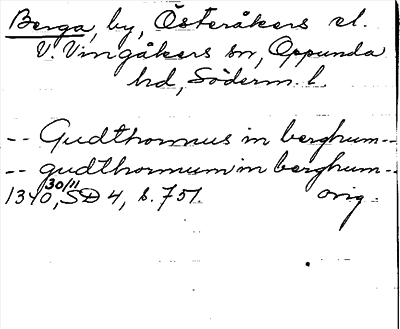 Berga, by, Österåkers el.
V. Vingåkers sn, Oppunda
hd, Söderm. l.
-- Gudthormus in berghum --
-- gudthormum in berghum --
1340 30/11, SD 4, s. 751. orig.